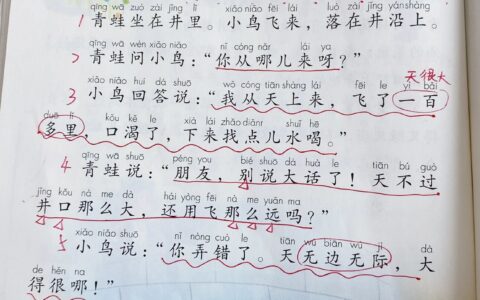 qīng wā zuò zài jǐng lǐ xiǎo niǎo fēi lái luò zài jǐng yán shàng
1 青蛙坐在井里。小鸟飞来，落在井沿上。
qīng wā wèn xiǎo niǎo nǐ cóng nǎr lái ya
2 青蛙问小鸟：“你从哪儿来呀？”
天很大
xiǎo niǎo huí dá shuō wǒ cóng tiān shàng lái fēi le yì bǎi
3 小鸟回答说：“我从天上来，飞了一百
duō lǐ kǒu kě le xià lái zhǎo diǎnr shuǐ hē
多里，口渴了，下来找点儿水喝。”
qīng wā shuō péng you bié shuō dà huà le tiān bú guò
4 青蛙说：“朋友，别说大话了！天不过
jǐng kǒu nà me dà hái yòng fēi nà me yuǎn ma
井口那么大，还用飞那么远吗？”
xiǎo niǎo shuō nǐ nòng cuò le tiān wú biān wú jì dà
5 小鸟说：“你弄错了。天无边无际，大
de hěn na
得很哪！”